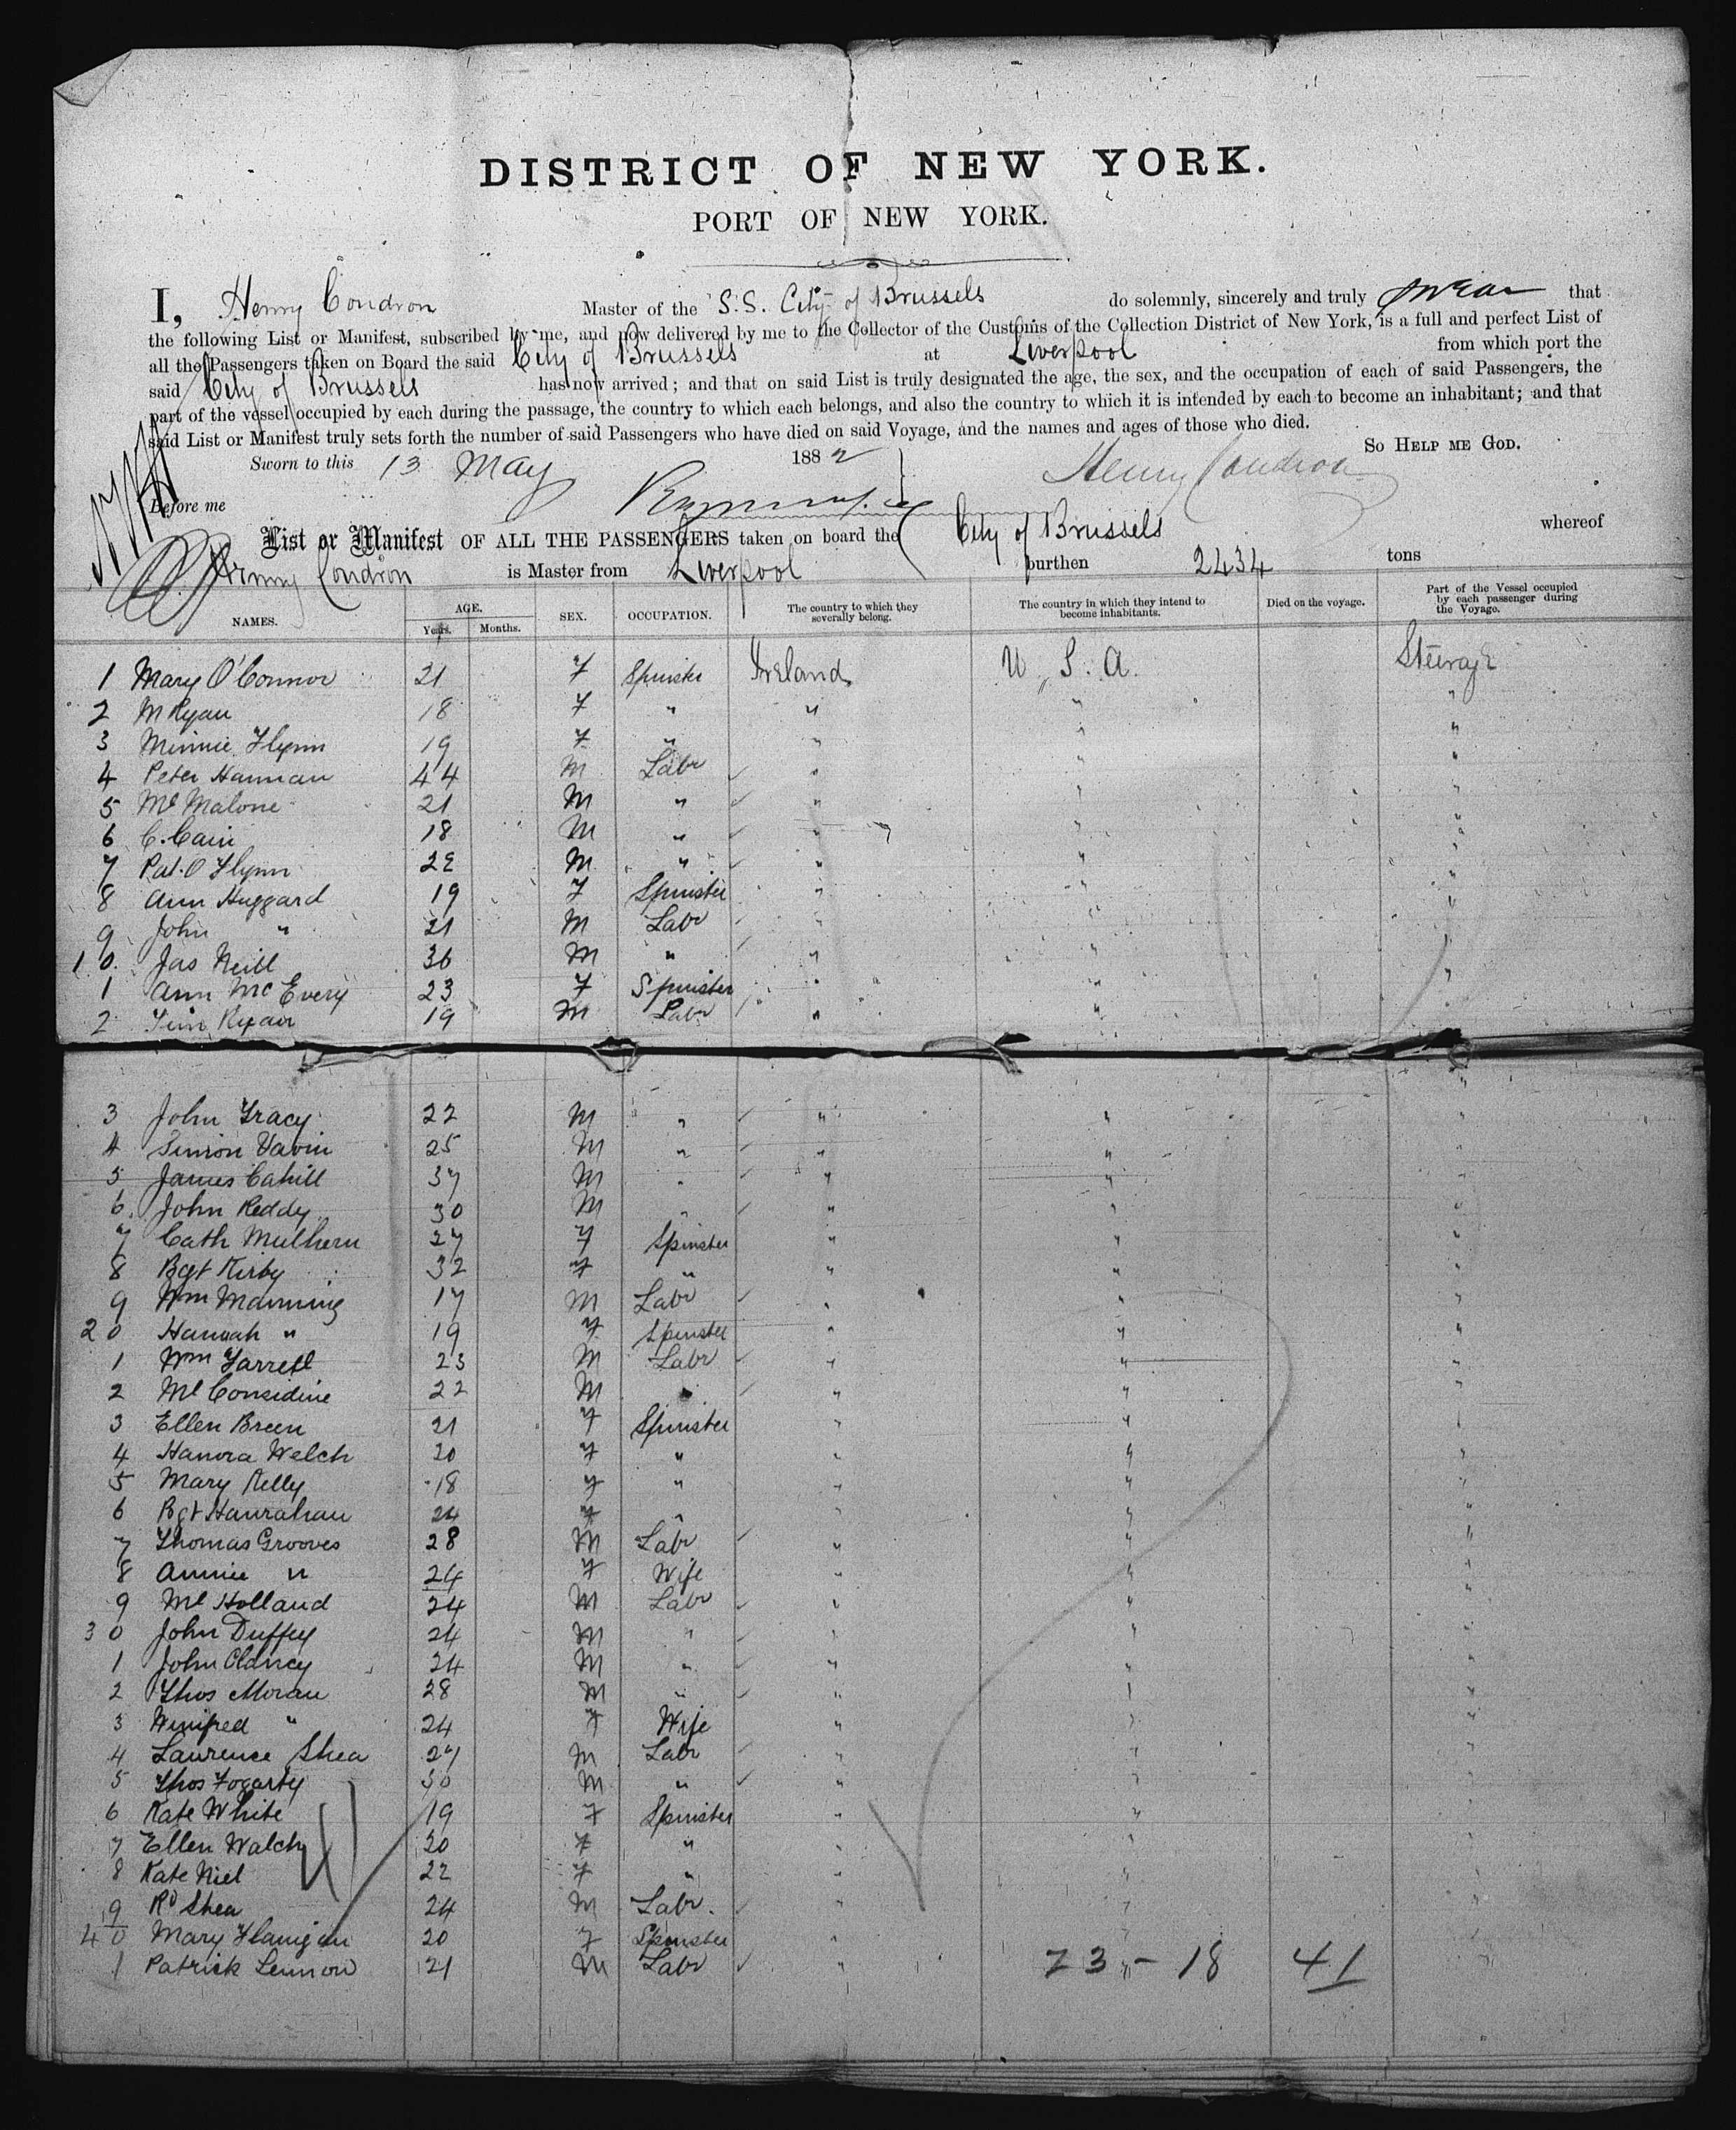 DISTRICT OF NEW YORK.
PORT OF NEW YORK.
I, Henry Condron Master of the S.S. City of Brussels do solemnly, sincerely and truly swear that
the following List or Manifest, subscribed by me, and now delivered by me to the Collector of the Customs of the Collection District of New York, is a full and perfect List of
all the Passengers taken on Board the said City of Brussels at Liverpool from which port the
said City of Brussels has now arrived; and that on said List is truly designated the age, the sex, and the occupation of each of said Passengers, the
part of the vessel occupied by each during the passage, the country to which each belongs, and also the country to which it is intended by each to become an inhabitant; and that
said List or Manifest truly sets forth the number of said Passengers who have died on said Voyage, and the names and ages of those who died.
So HELP ME GOD.
Sworn to this 13 May 1882 Henry Condron
Before me
List or Manifest OF ALL THE PASSENGERS taken on board the City of Brussels whereof
Henry Condron is Master from Liverpool burthen 2434 tons
NAMES. AGE. Years. Months. SEX. OCCUPATION. The country to which they severally belong. The country in which they intend to become inhabitants. Died on the voyage. Part of the Vessel occupied by each passenger during the Voyage.
1 Mary O'Connor 21 F Spinster Ireland U.S.A. Steerage
2 M Ryan 18 F " " " "
3 Minnie Flynn 19 F " " " "
4 Peter Hannan 44 M Labr " " "
5 Ml Malone 21 M " " " "
6 C. Cain 18 M " " " "
7 Pat. O Flynn 22 M " " " "
8 Ann Huggard 19 F Spinster " " "
9 John " 21 M Labr " " "
10 Jas Neill 36 M " " " "
1 Ann McEvery 23 F Spinster " " "
2 Tim Ryan 19 M Labr " " "
3 John Tracy 22 M " " " "
4 Simon 25 M " " " "
5 James Cahill 37 M " " " "
6 John Reddy 30 M " " " "
7 Cath Mulhern 27 F Spinster " " "
8 Bgt Kirby 32 F " " " "
9 Wm Manning 17 M Labr " " "
20 Hannah " 19 F Spinster " " "
1 Wm Farrell 23 M Labr " " "
2 Ml Considine 22 M " " " "
3 Ellen Breen 21 F Spinster " " "
4 Hanora Welch 20 F " " " "
5 Mary Kelly 18 F " " " "
6 Bgt Hanrahan 24 F " " " "
7 Thomas Grooves 28 M Labr " " "
8 Annie " 24 F Wife " " "
9 Ml Holland 24 M Labr " " "
30 John Duffey 24 M " " " "
1 John Clancy 24 M " " " "
2 Thos Moran 28 M " " " "
3 Winifred " 24 F Wife " " "
4 Laurence Shea 27 M Labr " " "
5 Thos Fogarty 30 M " " " "
6 Kate White 19 F Spinster " " "
7 Ellen Walch 20 F " " " "
8 Kate Niel 22 F " " " "
9 Rd Shea 24 M Labr. " " "
40 Mary Flanigan 20 F Spinster " " "
1 Patrick Lennon 21 M Labr " " "
23 - 18 41